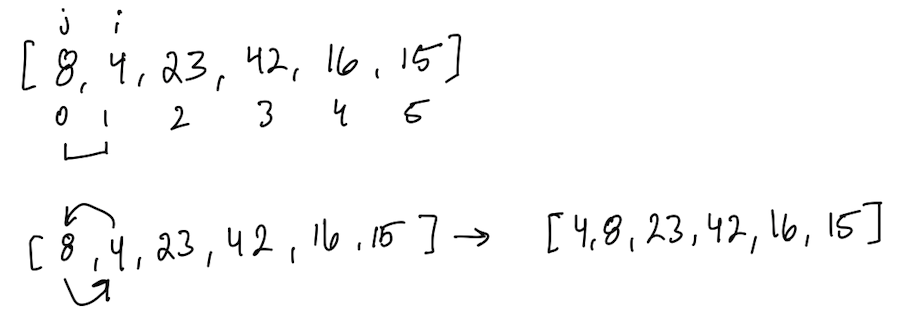 j i
[ 8, 4, 23, 42, 16, 15]
0 1 2 3 4 5
[ 8, 4, 23, 42, 16, 15 ] → [4,8, 23, 42, 16, 15]